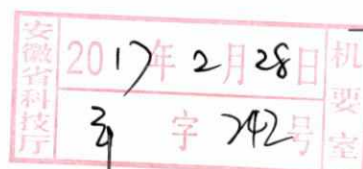 安徽省科技厅
2017年2月28日
字242号
机要室